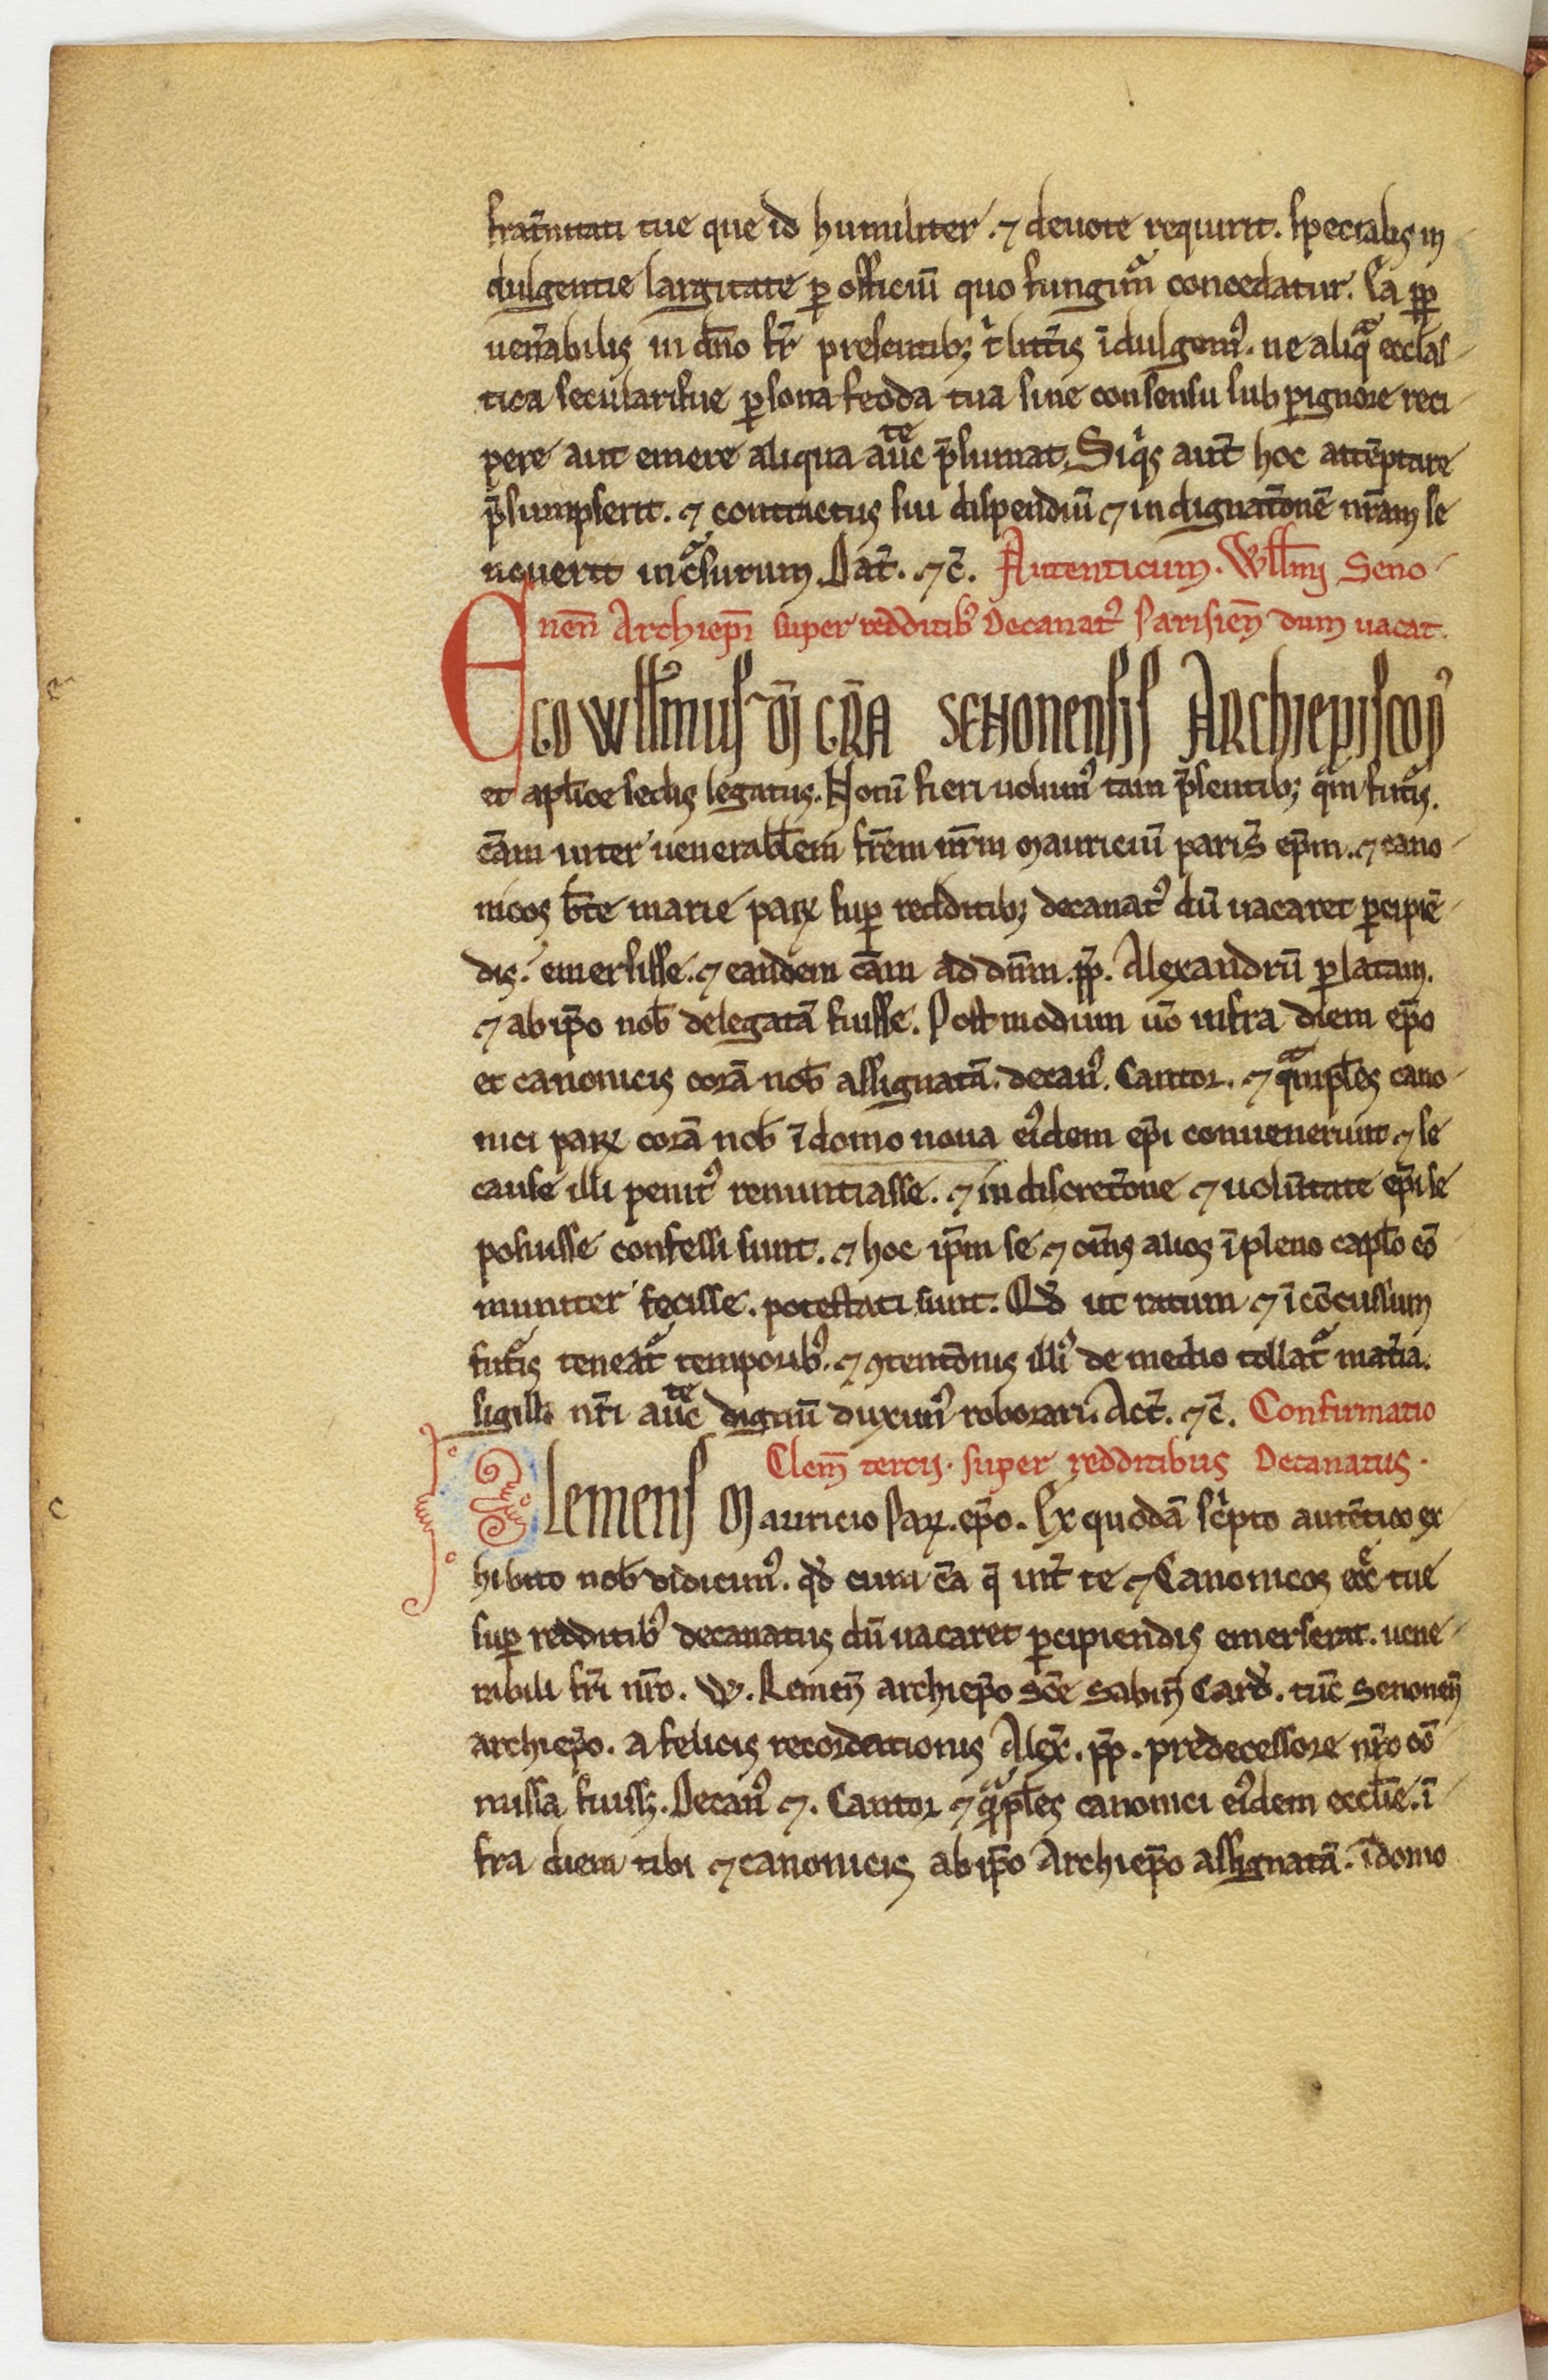 frat̃nitati tue que id humiliter. ⁊ deuote requirit. specialis in
dulgentie largitate ꝑ officiũ quo fungim̃ concedatur. Ea ꝓp
uen̾abilis in dño fr̃ presentibꝫ t̾ litt̾is ĩdulgem᷒. ne aliqͣ eccl̃as
tica secularisue ꝑsona feoda tua sine consensu sub pignore reci
pere aut emere aliqua auc̃te p̃sumat. Siqͥs aut̃ hoc attẽptare
p̃sumpserit. ⁊ contractus sui dispendiũ ⁊ indignatõnẽ nr̃am se
nouerit incͬsurum. Dat̃. ⁊c̃. Autenticum. Wllmĩ Seno
neñ Archiepĩ super redditib᷒ Decanat᷒ Parisieñ dum uacat.
Ego Will̃mus dĩ gr̃a Senonensis Archiepiscop᷒
et apl̃ice sedis legatus. Notũ fieri uolum᷒ tam p̃sentibꝫ qͣm futͬis.
cãm inter uenerabl̃em fr̃em nr̃m Mauriciũ paris̃ ep̃m. ⁊ cano
nicos b̃te marie paꝝ suꝑ redditibꝫ decanat᷒ dũ uacaret ꝑcipiẽ
dis. emersisse. ⁊ eandem cãm ad dñm pp̃. Alexandrũ ꝑlatam.
⁊ ab ip̃o nob̃ delegatã fuisse. Postmodum ũo infra diem ep̃o
et canonicis corã nob̃ assignatã. decan᷒. Cantor. ⁊ qͣmpl̃es cano
nici paꝝ corã nob̃ ĩ domo noua ei᷒dem ep̃i conuenerunt ⁊ se
cause illi penit᷒ renuntiasse. ⁊ in discretõne ⁊ uolũtate ep̃i se
posuisse confessi sunt. ⁊ hoc ip̃m se ⁊ om̃s alios ĩ pleno capl̃o cõ
muniter fecisse. potestati sunt. Qd̃ ut ratum ⁊ ĩcõcussum
futͬis teneatͬ temporib᷒. ⁊ ꝯtentõnis illi᷒ de medio tollatͬ mat̾ia.
sigilli nr̃i auc̃te dignũ duxim᷒ roborari. Act̃. ⁊c̃. Confirmatio
Clem̃ tercij. super redditibus Decanatus.
Clemens Mauricio Paꝝ. ep̃o. Ex quodã scͥpto autẽtico ex
hibito nob̃ didicim᷒. qd̃ cum cã q̃ int̃ te ⁊ Canonicos ecc̃ tue
suꝑ redditib᷒ decanatus dũ uacaret ꝑcipiendis emerserat. uene
rabili fr̃i nr̃o. W. Remeñ archiep̃o Sc̃e Sabiñ Card̃. tũc Senoneñ
archiep̃o. a felicis recordationis Alex̃. pp̃. predecessore nr̃o cõ
missa fuissꝫ. Decan᷒ ⁊. Cantor ⁊ qͣpl̃es canonici ei᷒dem eccl̃ie. ĩ
fra diem tibi ⁊ canonicis ab ip̃o Archiep̃o assignatã. ĩ domo
e
c